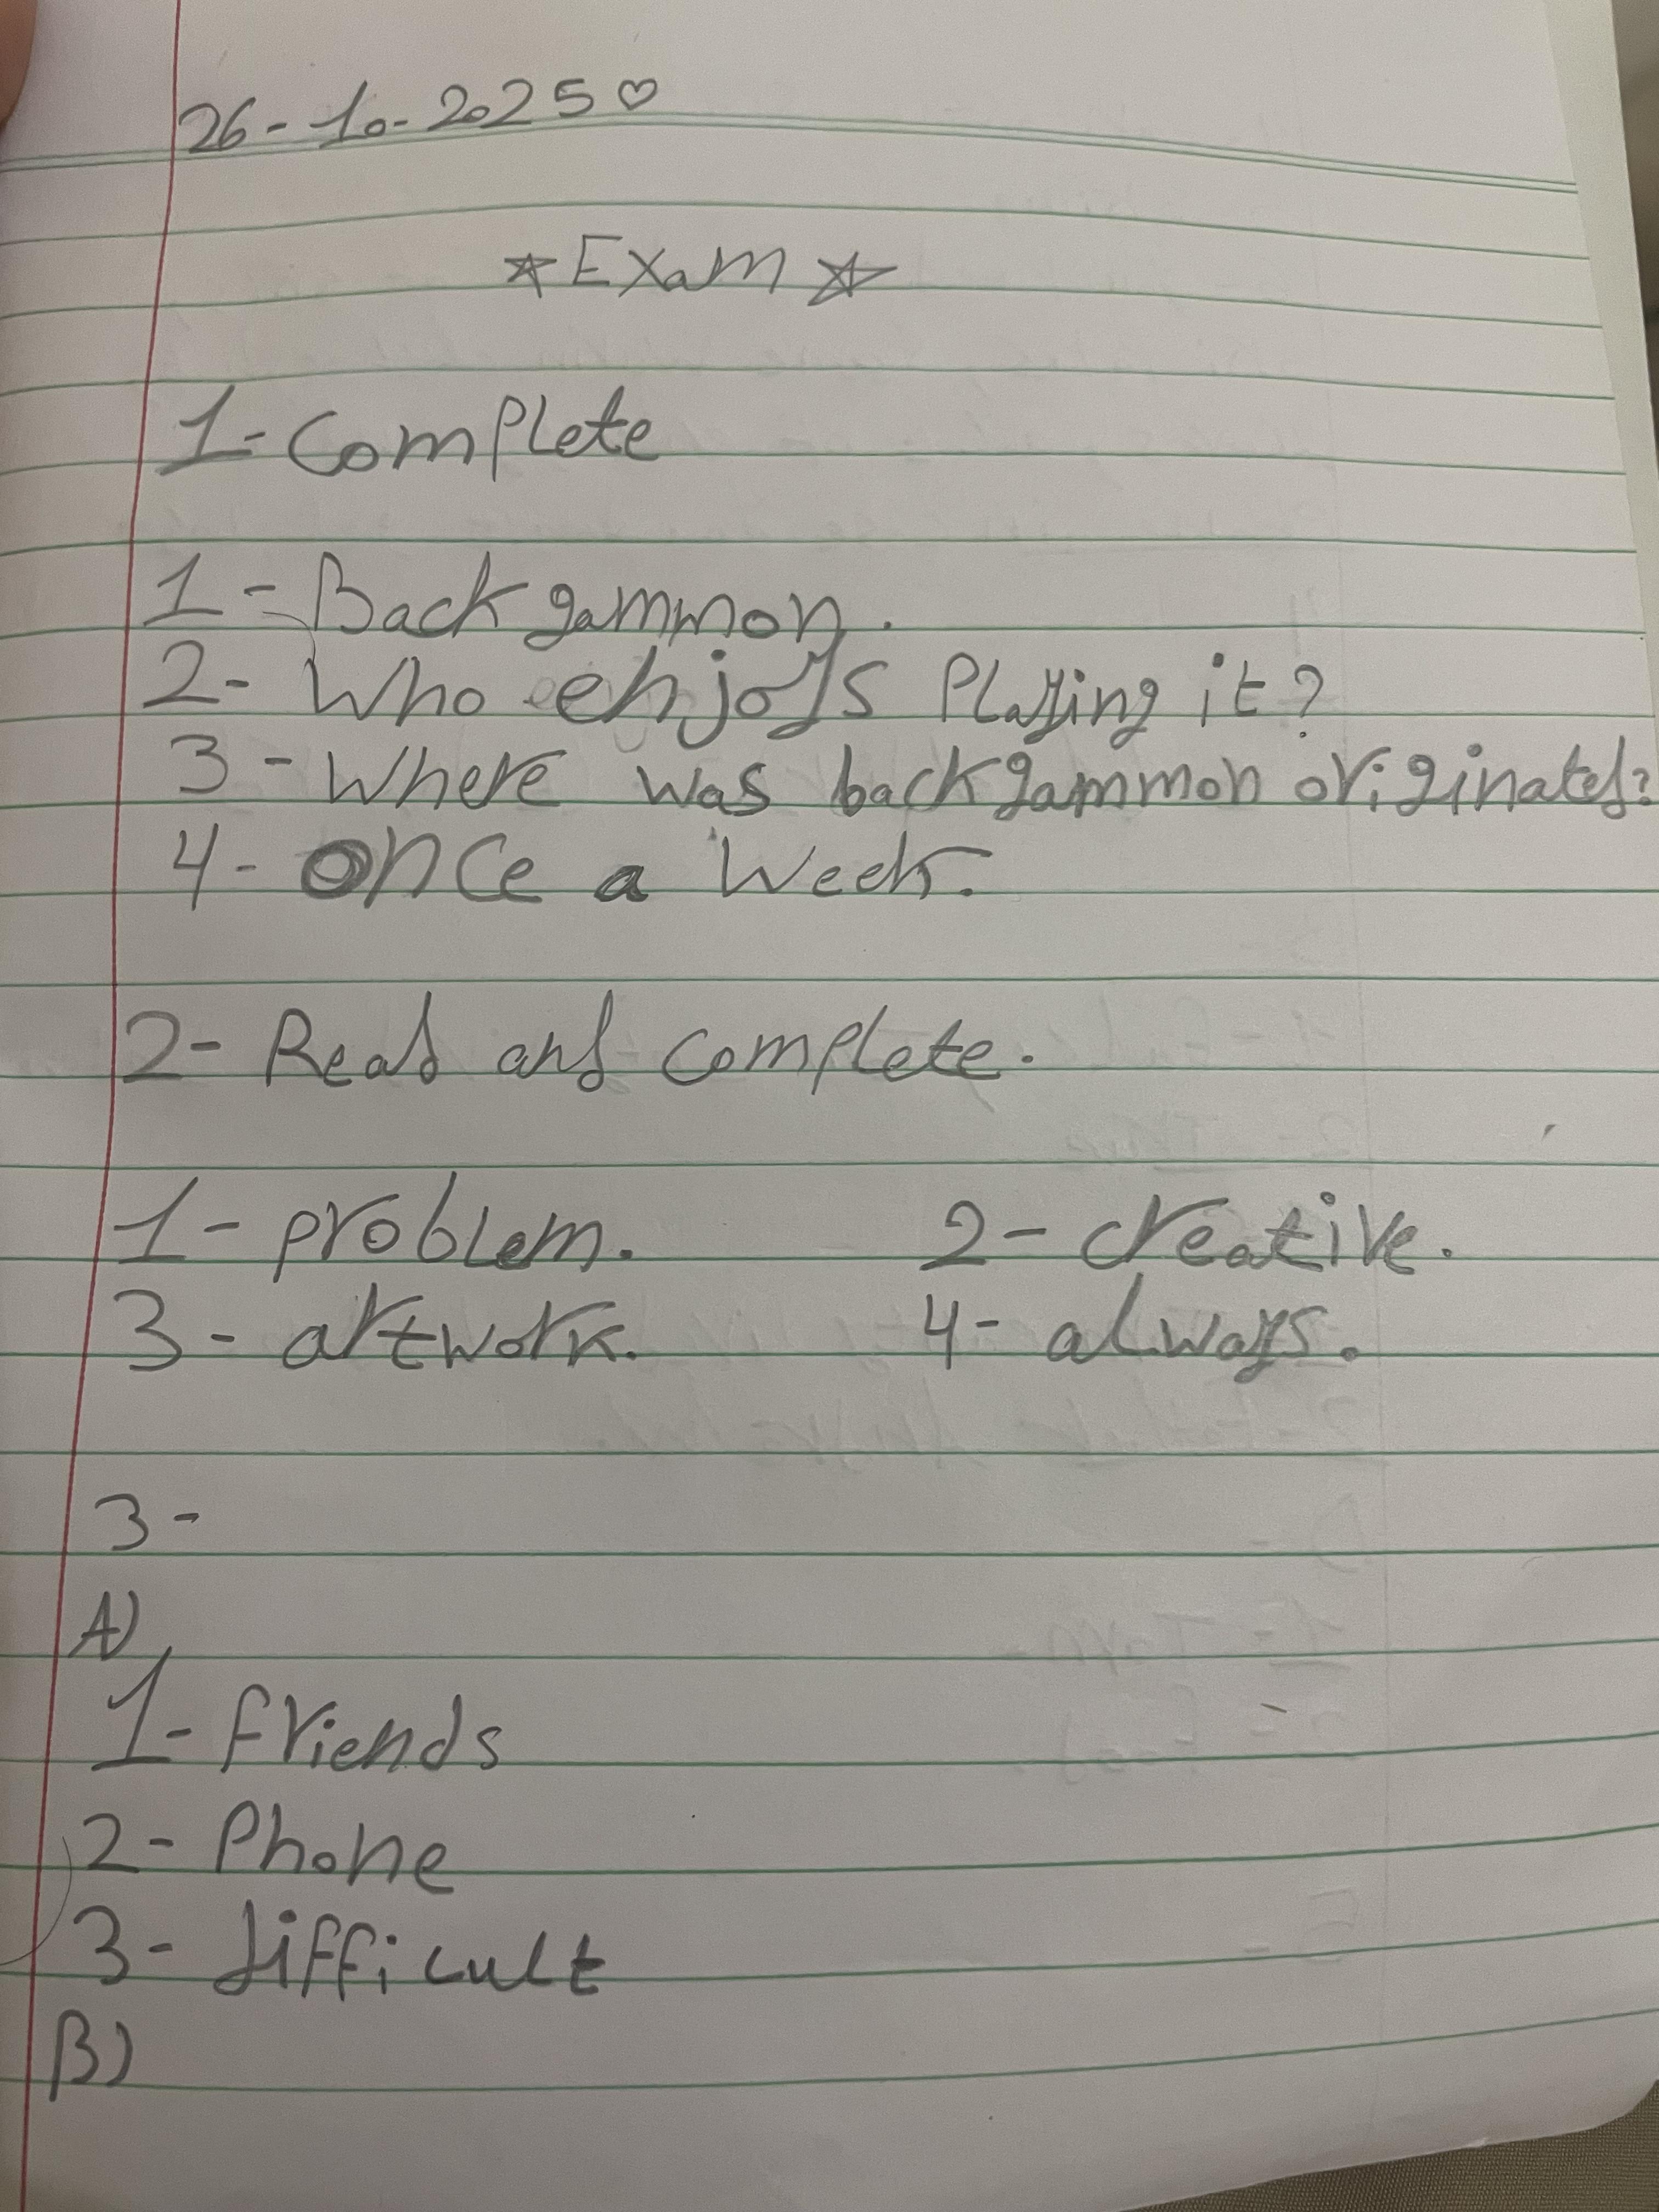 26-10-2025♡
☆Exam☆
1-Complete
1-Backgammon.
2- Who enjoys Playing it?
3-Where was backgammon originated?
4- once a week.
2- Read and complete.
1- problem. 2- creative.
3- artwork. 4- always.
3-
A)
1- friends
2- Phone
3- difficult
B)